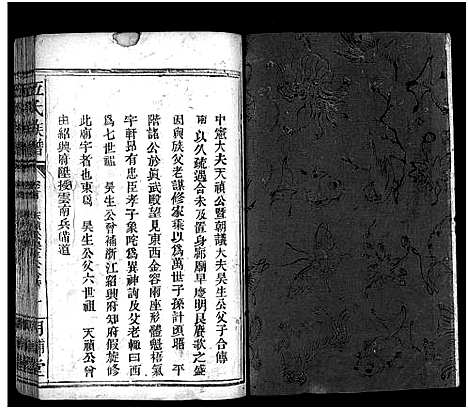 中憲大夫天禎公暨朝議大夫昊生公父子合傳
南 以久疏遇合未及置身廊廟早慶明良賡歌之盛
因與族父老謀修家乘以為萬世子孫計頭塔 平
階諸公於真武殿望見東西金容兩座形體魁梧氣
宇軒昂有忠臣孝子象咤為異神詢及父老輙曰西
為七世祖 昊生公曾補浙江紹興府知府假旋修
此廟宇者也東為 昊生公父六世祖 天禎公曾
由紹興府陞授雲南兵備道
伍氏族譜
明輔堂